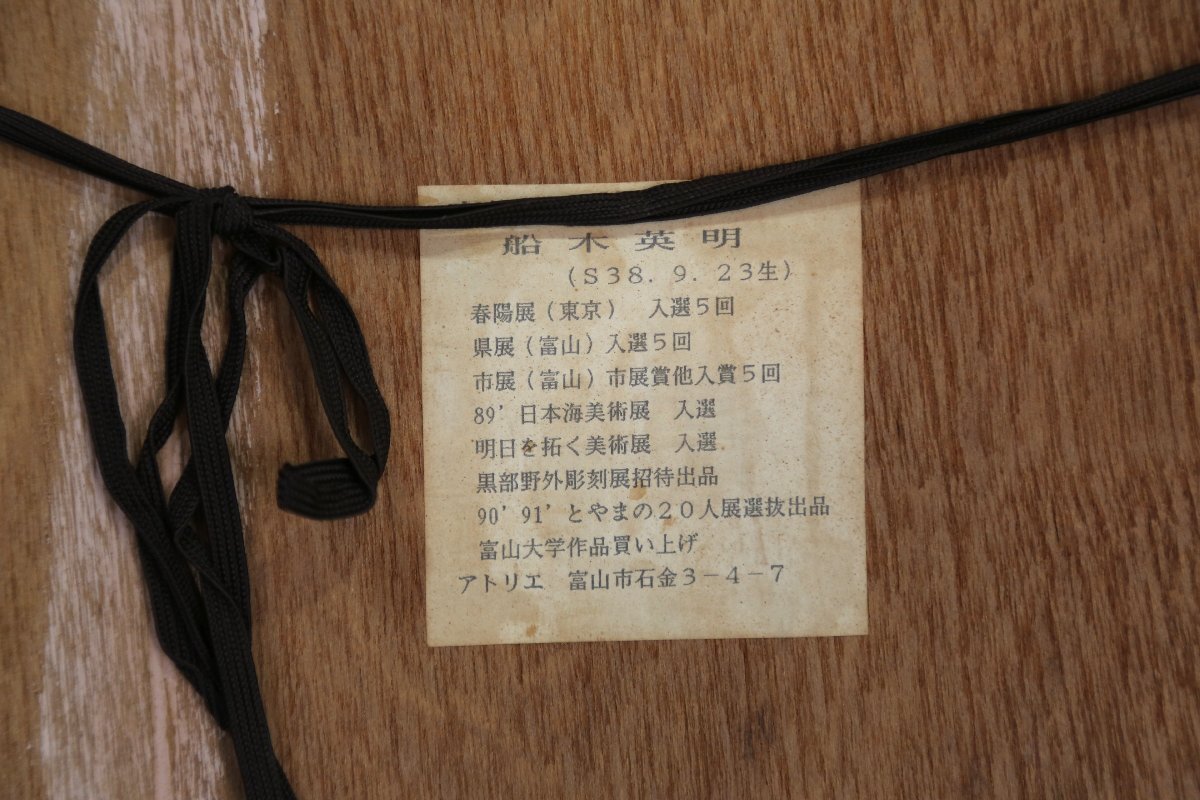 船木英明
(S38.9.23生)
春陽展(東京) 入選5回
県展(富山)入選5回
市展(富山)市展賞他入賞5回
89'日本海美術展 入選
明日を拓く美術展 入選
黒部野外彫刻展招待出品
90'91'とやまの20人展選抜出品
富山大学作品買い上げ
アトリエ 富山市石金3-4-7